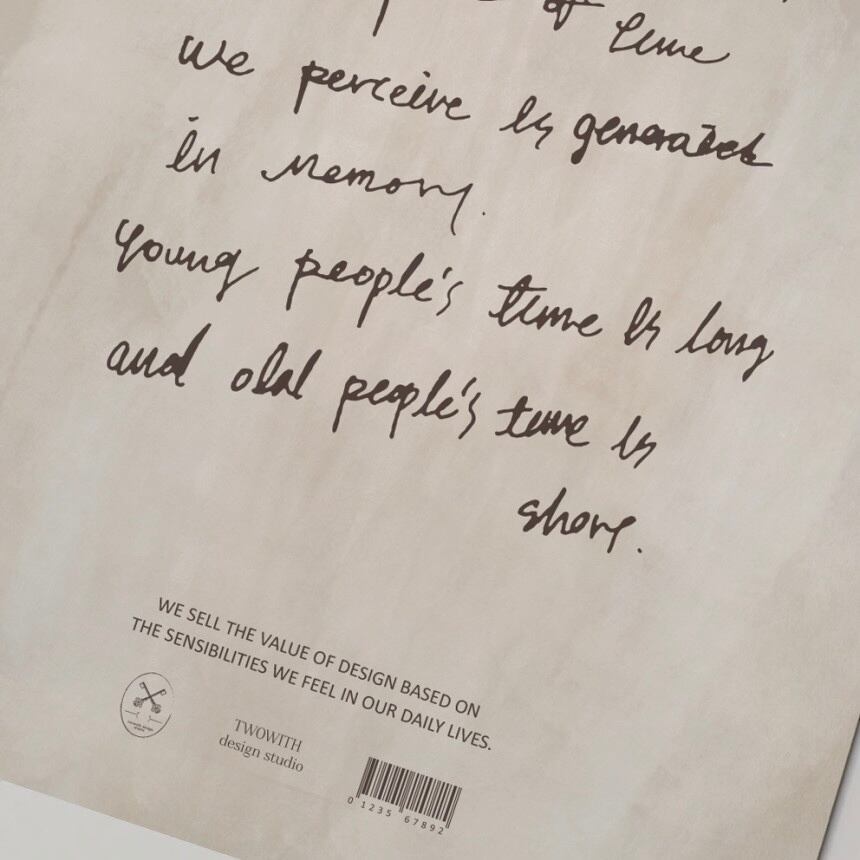 of time
we perceive is generated
in memory.
Young people's time is long
and old people's time is
short.
WE SELL THE VALUE OF DESIGN BASED ON
THE SENSIBILITIES WE FEEL IN OUR DAILY LIVES.
TWOWITH
design studio
0 1235 67892